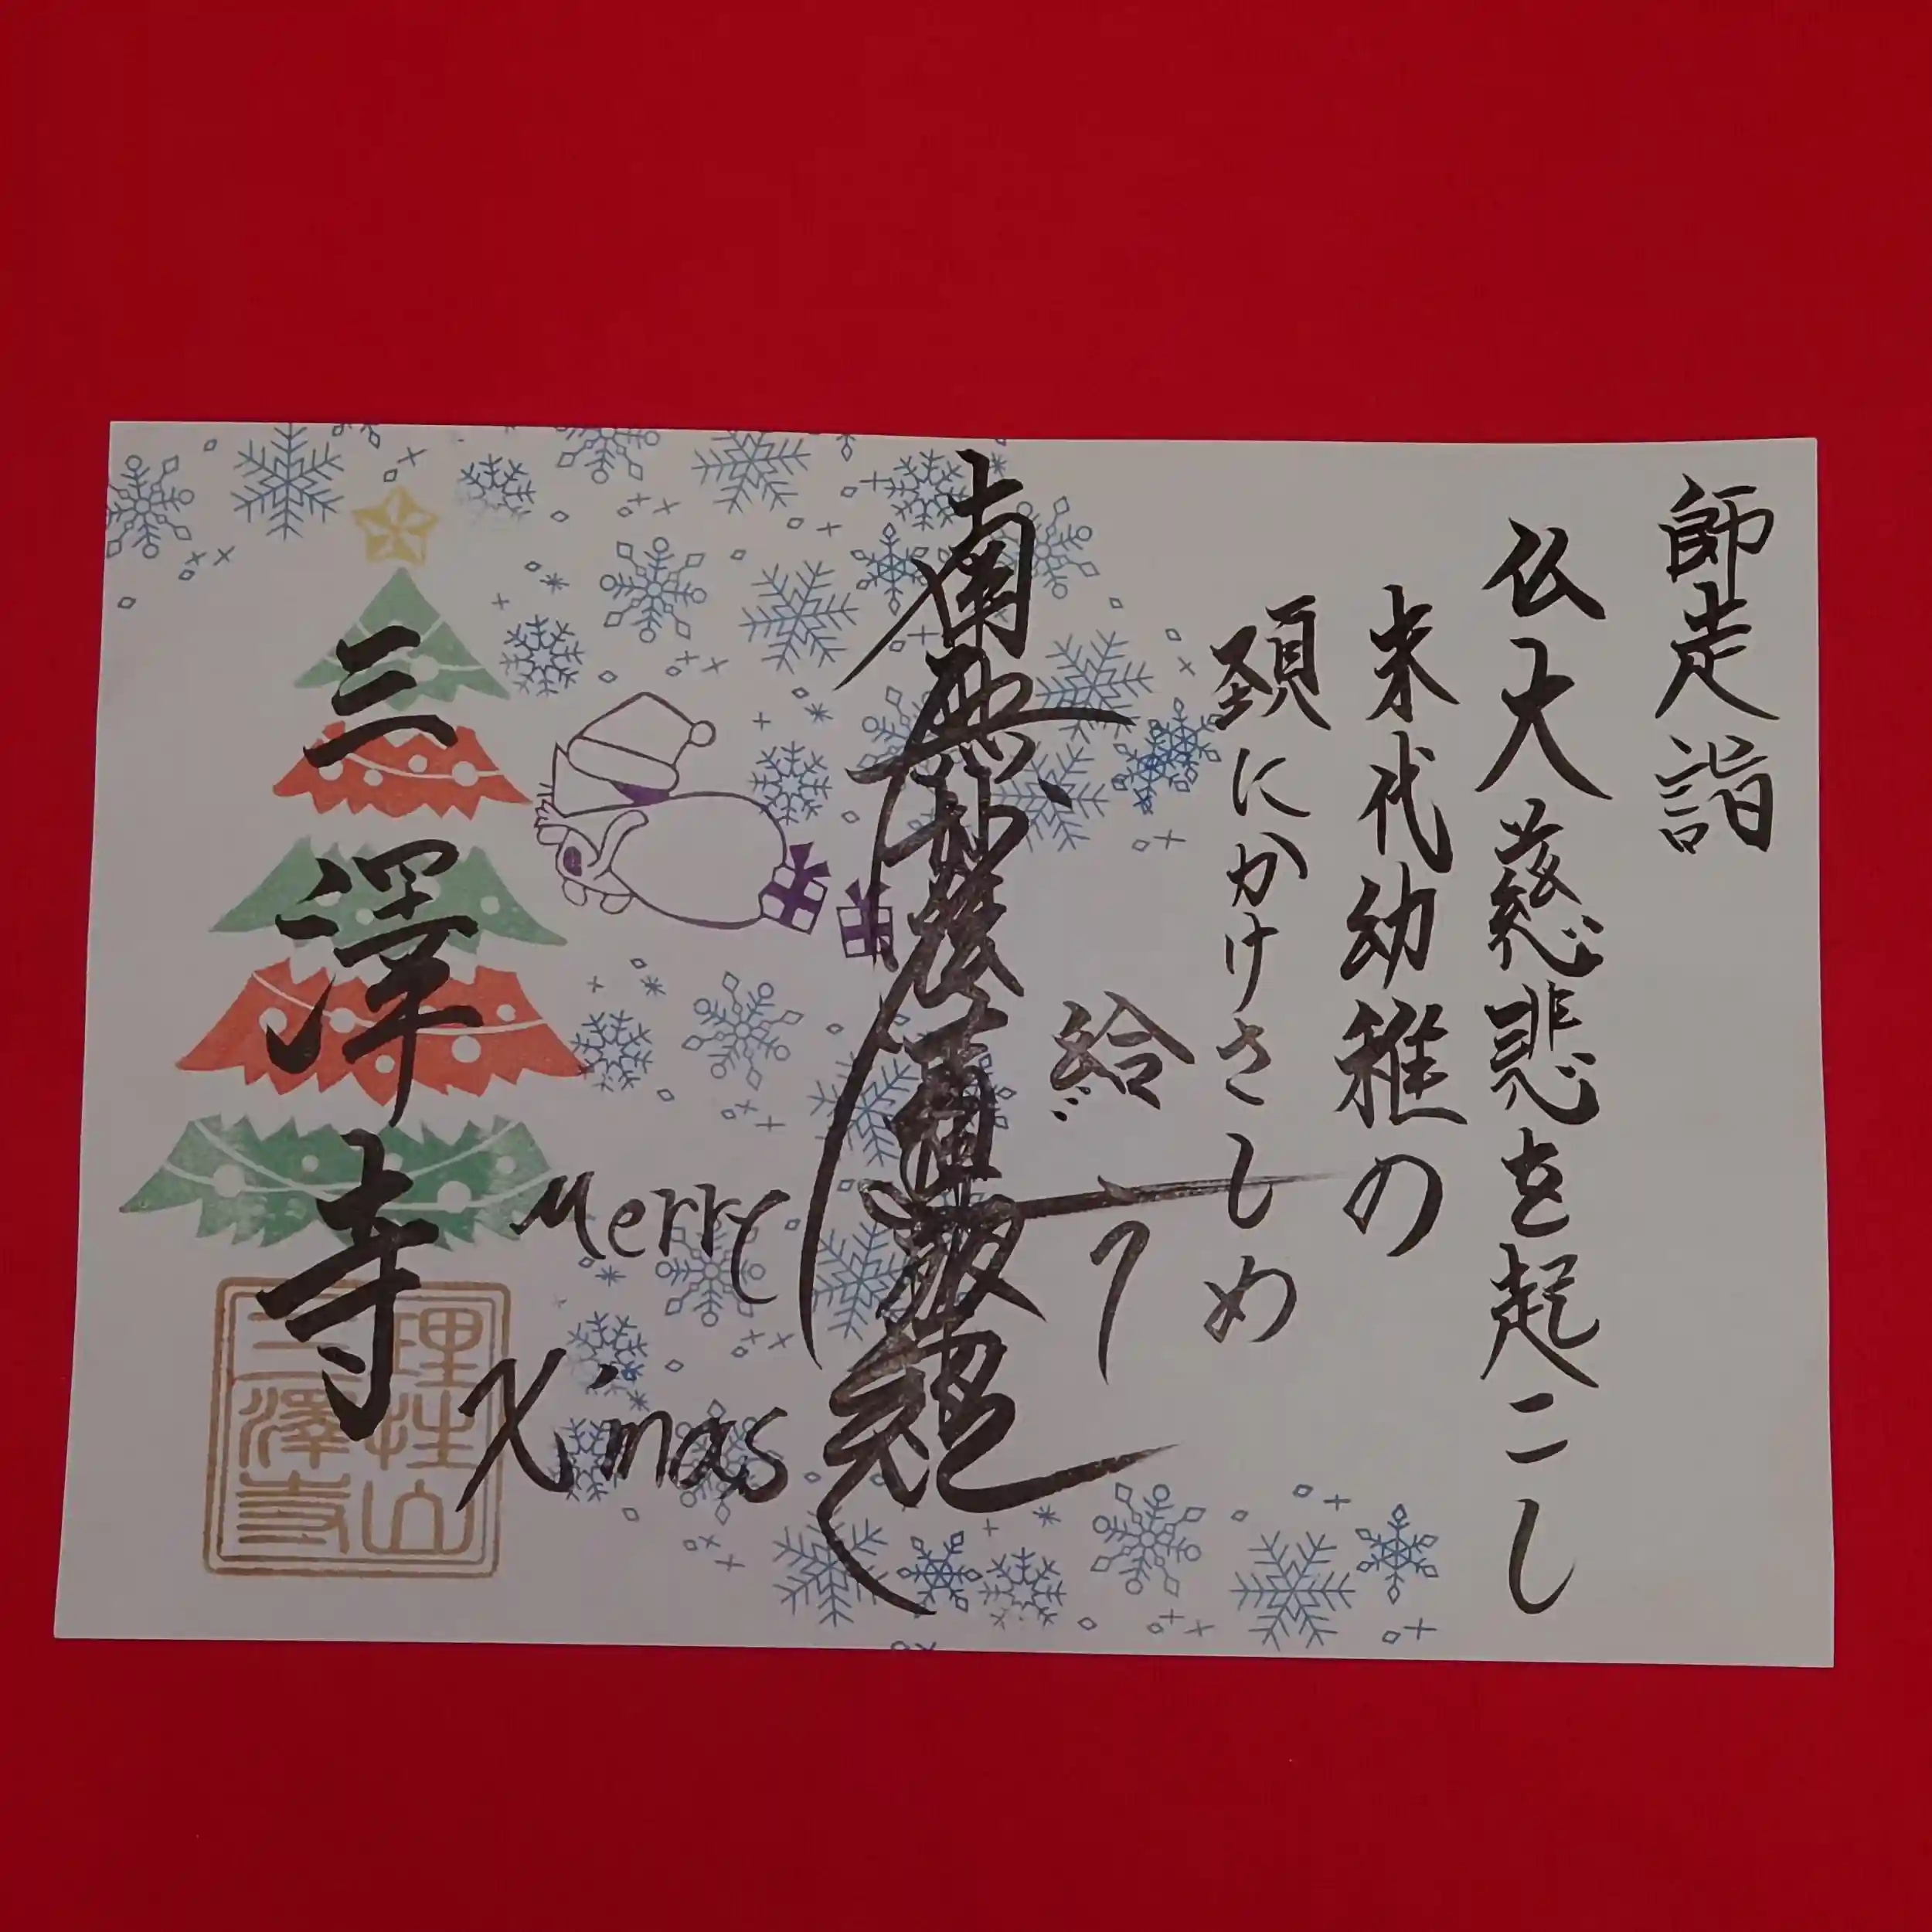 師走詣
仏大慈悲を起こし
末代幼稚の
頚にかけさしめ
給う
南無妙法蓮華経
Merry
X'mas
三澤寺
理性山
三澤寺